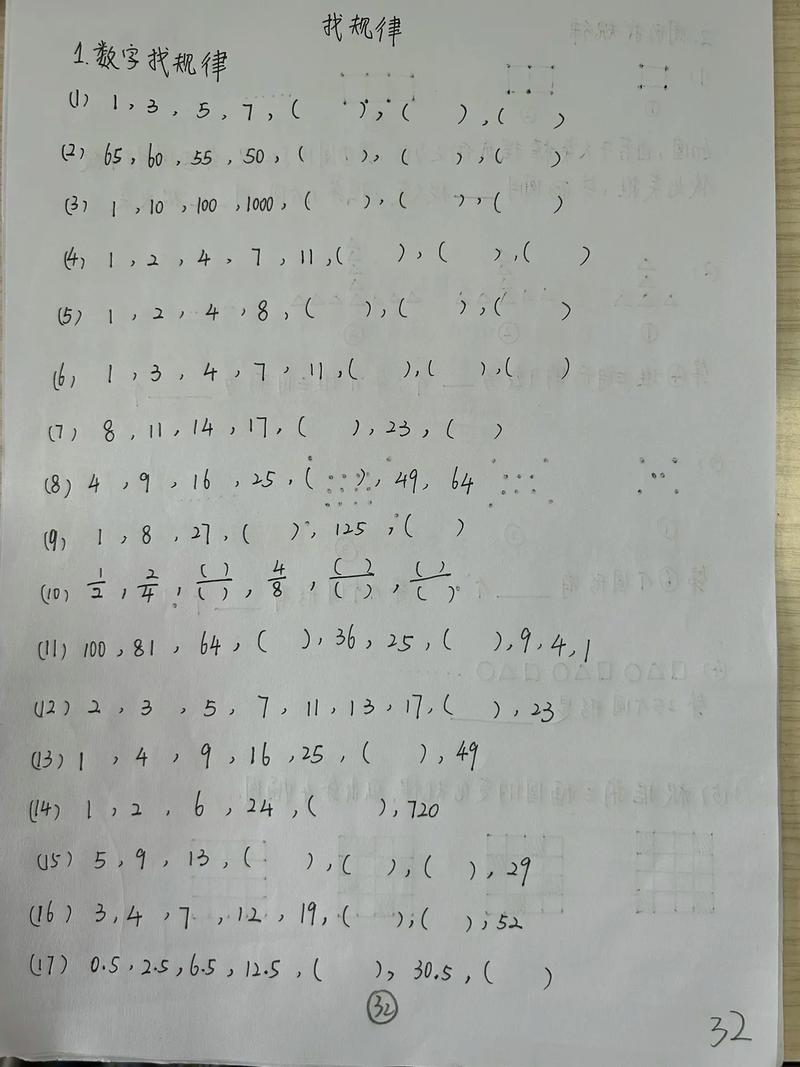 找规律
1.数字找规律
(1) 1, 3, 5, 7, ( ), ( ), ( )
(2) 65, 60, 55, 50, ( ), ( ), ( )
(3) 1, 10, 100, 1000, ( ), ( ), ( )
(4) 1, 2, 4, 7, 11, ( ), ( ), ( )
(5) 1, 2, 4, 8, ( ), ( ), ( )
(6) 1, 3, 4, 7, 11, ( ), ( ), ( )
(7) 8, 11, 14, 17, ( ), 23, ( )
(8) 4, 9, 16, 25, ( ), 49, 64
(9) 1, 8, 27, ( ), 125, ( )
(10) 1/2, 2/4, ( )/( ), 4/8, ( )/( ), ( )/( )
(11) 100, 81, 64, ( ), 36, 25, ( ), 9, 4, 1
(12) 2, 3, 5, 7, 11, 13, 17, ( ), 23
(13) 1, 4, 9, 16, 25, ( ), 49
(14) 1, 2, 6, 24, ( ), 720
(15) 5, 9, 13, ( ), ( ), ( ), 29
(16) 3, 4, 7, 12, 19, ( ), ( ), 52
(17) 0.5, 2.5, 6.5, 12.5, ( ), 30.5, ( )
32
32